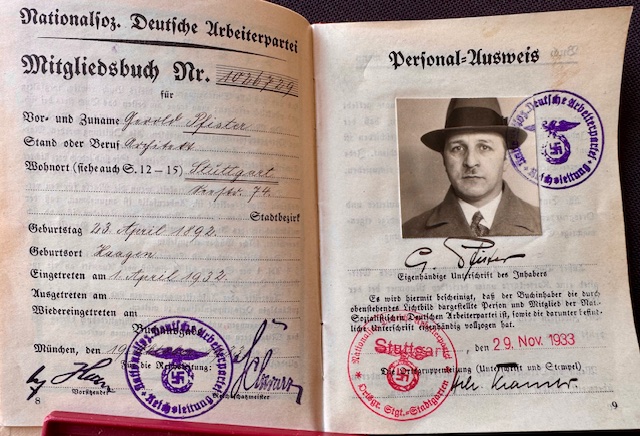 Nationalsoz. Deutsche Arbeiterpartei
Mitgliedsbuch Nr. 1026729
für
Vor- und Zuname Gerold Pfister
Stand oder Beruf Architekt
Wohnort (siehe auch S. 12-15) Stuttgart
74.
Stadtbezirk
Geburtstag 23. April 1892.
Geburtsort Haagen
Eingetreten am 1. April 1932.
Ausgetreten am
Wiedereingetreten am
München, den
Für die Reichsleitung:
Vorsitzender
Reichsschatzmeister
Nationalsoz. Deutsche Arbeiterpartei
Reichsleitung
8
Personal-Ausweis
Nationalsoz. Deutsche Arbeiterpartei
Reichsleitung
G. Pfister
Eigenhändige Unterschrift des Inhabers
Es wird hiermit bescheinigt, daß der Buchinhaber die durch
obenstehendes Lichtbild dargestellte Person und Mitglied der Nat.-
Sozialistischen Deutschen Arbeiterpartei ist, sowie die darunter befind-
liche Unterschrift eigenhändig vollzogen hat.
Stuttgart, den 29. Nov. 1933
Die Ortsgruppenleitung (Unterschrift und Stempel)
Nationalsoz. Deutsche Arbeiterpartei
Ortsgr. Stgt.-Stadtgarten
9